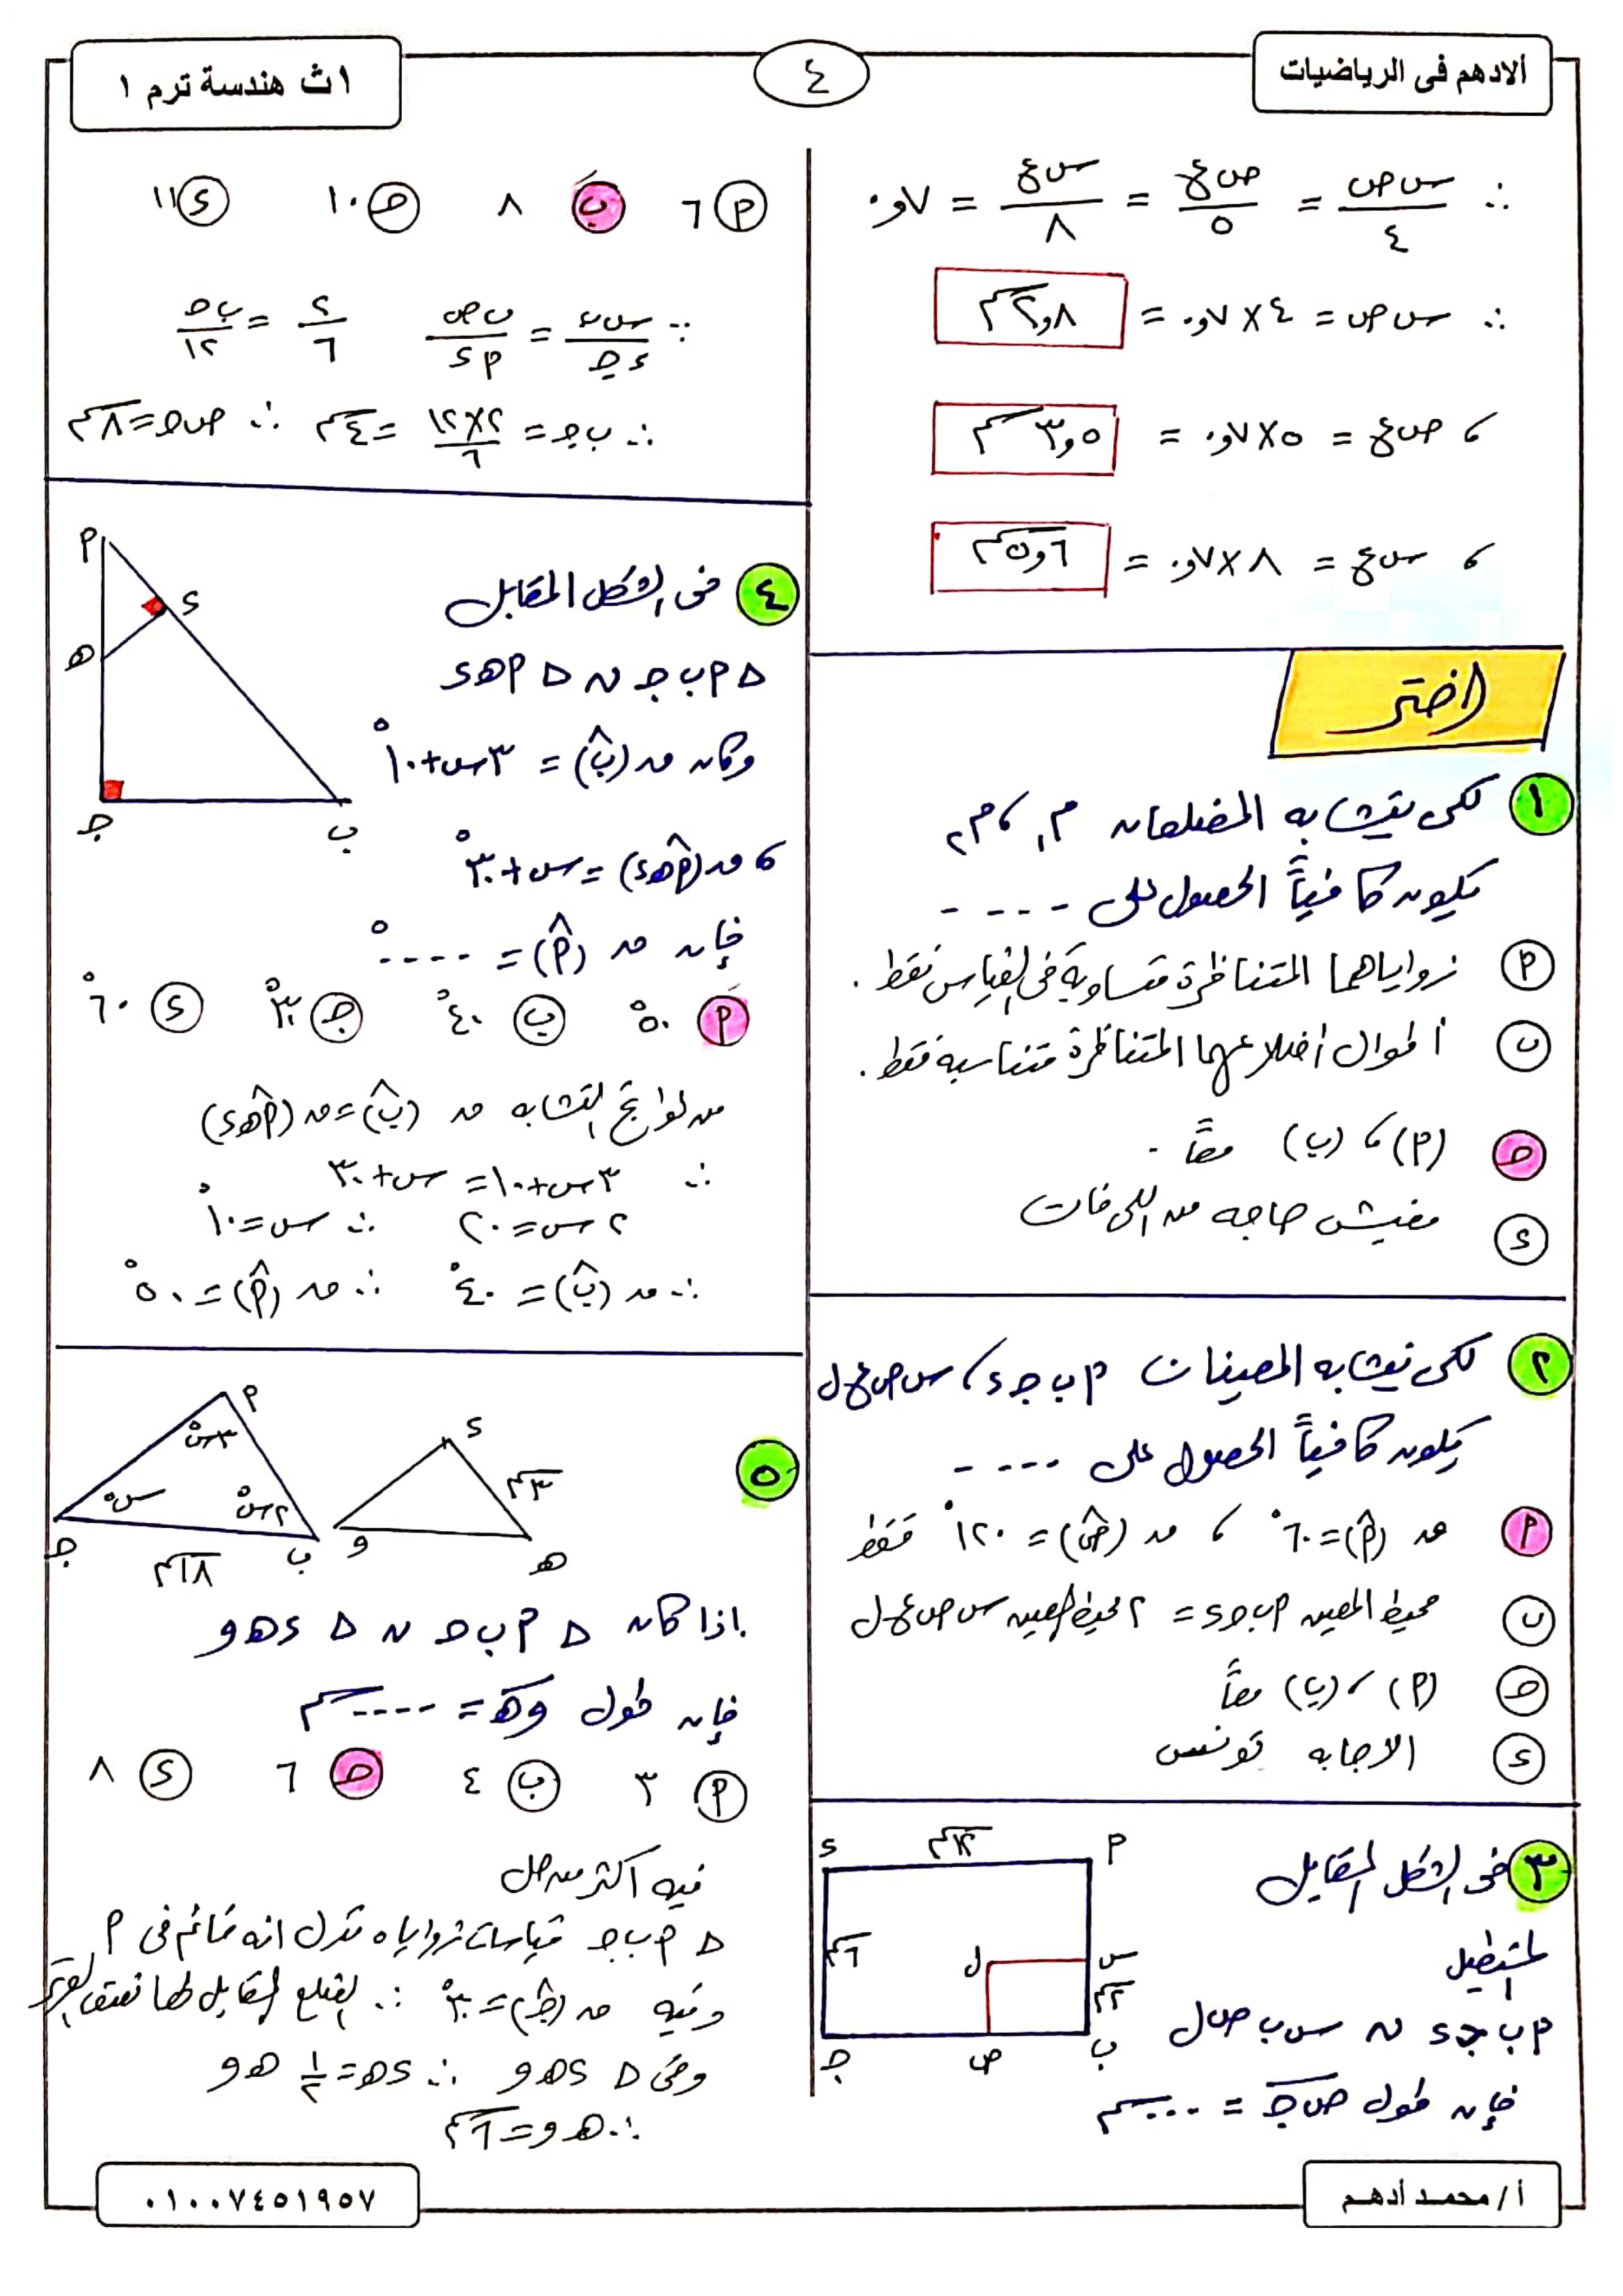 ألادهم فى الرياضيات
٤
١ث هندسة ترم ١
∴ س ص / ٤ = ص ع / ٥ = س ع / ٨ = ٠,٧
∴ س ص = ٤ × ٠,٧ = ٢,٨ سم
، ص ع = ٥ × ٠,٧ = ٣,٥ سم
، س ع = ٨ × ٠,٧ = ٥,٦ سم
اختر
١ لكى يتشابه المضلعان م١ ، م٢
يكون كافياً الحصول على ----
أ زواياهما المتناظرة متساوية فى القياس فقط .
ب أطوال أضلاعهما المتناظرة متناسبة فقط .
ح (أ) ، (ب) معاً .
د مفيش حاجه من اللى فات
٢ لكى يتشابه المعينان أ ب ج د ، س ص ع ل
يكون كافياً الحصول على ----
أ ق (أ) = ٦٠° ، ق (ص) = ١٢٠° فقط
ب محيط المعين أ ب ج د = ٢ محيط المعين س ص ع ل
ح (أ) ، (ب) معاً
د الاجابه تونس
٣ فى الشكل المقابل
المستطيل
أ ب ج د ~ س ب ص ل
فإن طول ص ج = ---- سم
د ١٢ سم أ
٦ سم ل س
٢ سم
ج ص ب
أ ٦ ب ٨ ح ١٠ د ١١
∵ س ب / د ج = ب ص / أ د ٢ / ٦ = ب ص / ١٢
∴ ب ص = ٢ × ١٢ / ٦ = ٤ سم ∴ ص ج = ٨ سم
٤ فى الشكل المقابل
△ أ ب ج ~ △ أ ه د
وكان ق (ب) = ٣س + ١٠°
، ق (أ ه د) = س + ٣٠°
فإن ق (أ) = ----°
أ ٥٠° ب ٤٠° ج ٣٠° د ٦٠°
أ
د
ه
ج ب
من نواتج التشابه ق (ب) = ق (أ ه د)
∴ ٣س + ١٠ = س + ٣٠
٢س = ٢٠ ∴ س = ١٠°
∴ ق (ب) = ٤٠° ∴ ق (أ) = ٥٠°
٥
أ ٣س° س° ٢س° ج ب ١٨ سم
د ٣ سم و ه
إذا كان △ أ ب ج ~ △ د ه و
فإن طول و ه = ---- سم
أ ٣ ب ٤ ح ٦ د ٨
فيه أكتر من حل
△ أ ب ج قياسات زواياه تدل انه قائم فى أ
وفيه ق (ج) = ٣٠° ∴ الضلع المقابل لها نصف الوتر
وفى △ د ه و ∴ د ه = ١/٢ ه و
∴ ه و = ٦ سم
أ / محمد أدهم
٠١٠٠٧٤٥١٩٥٧